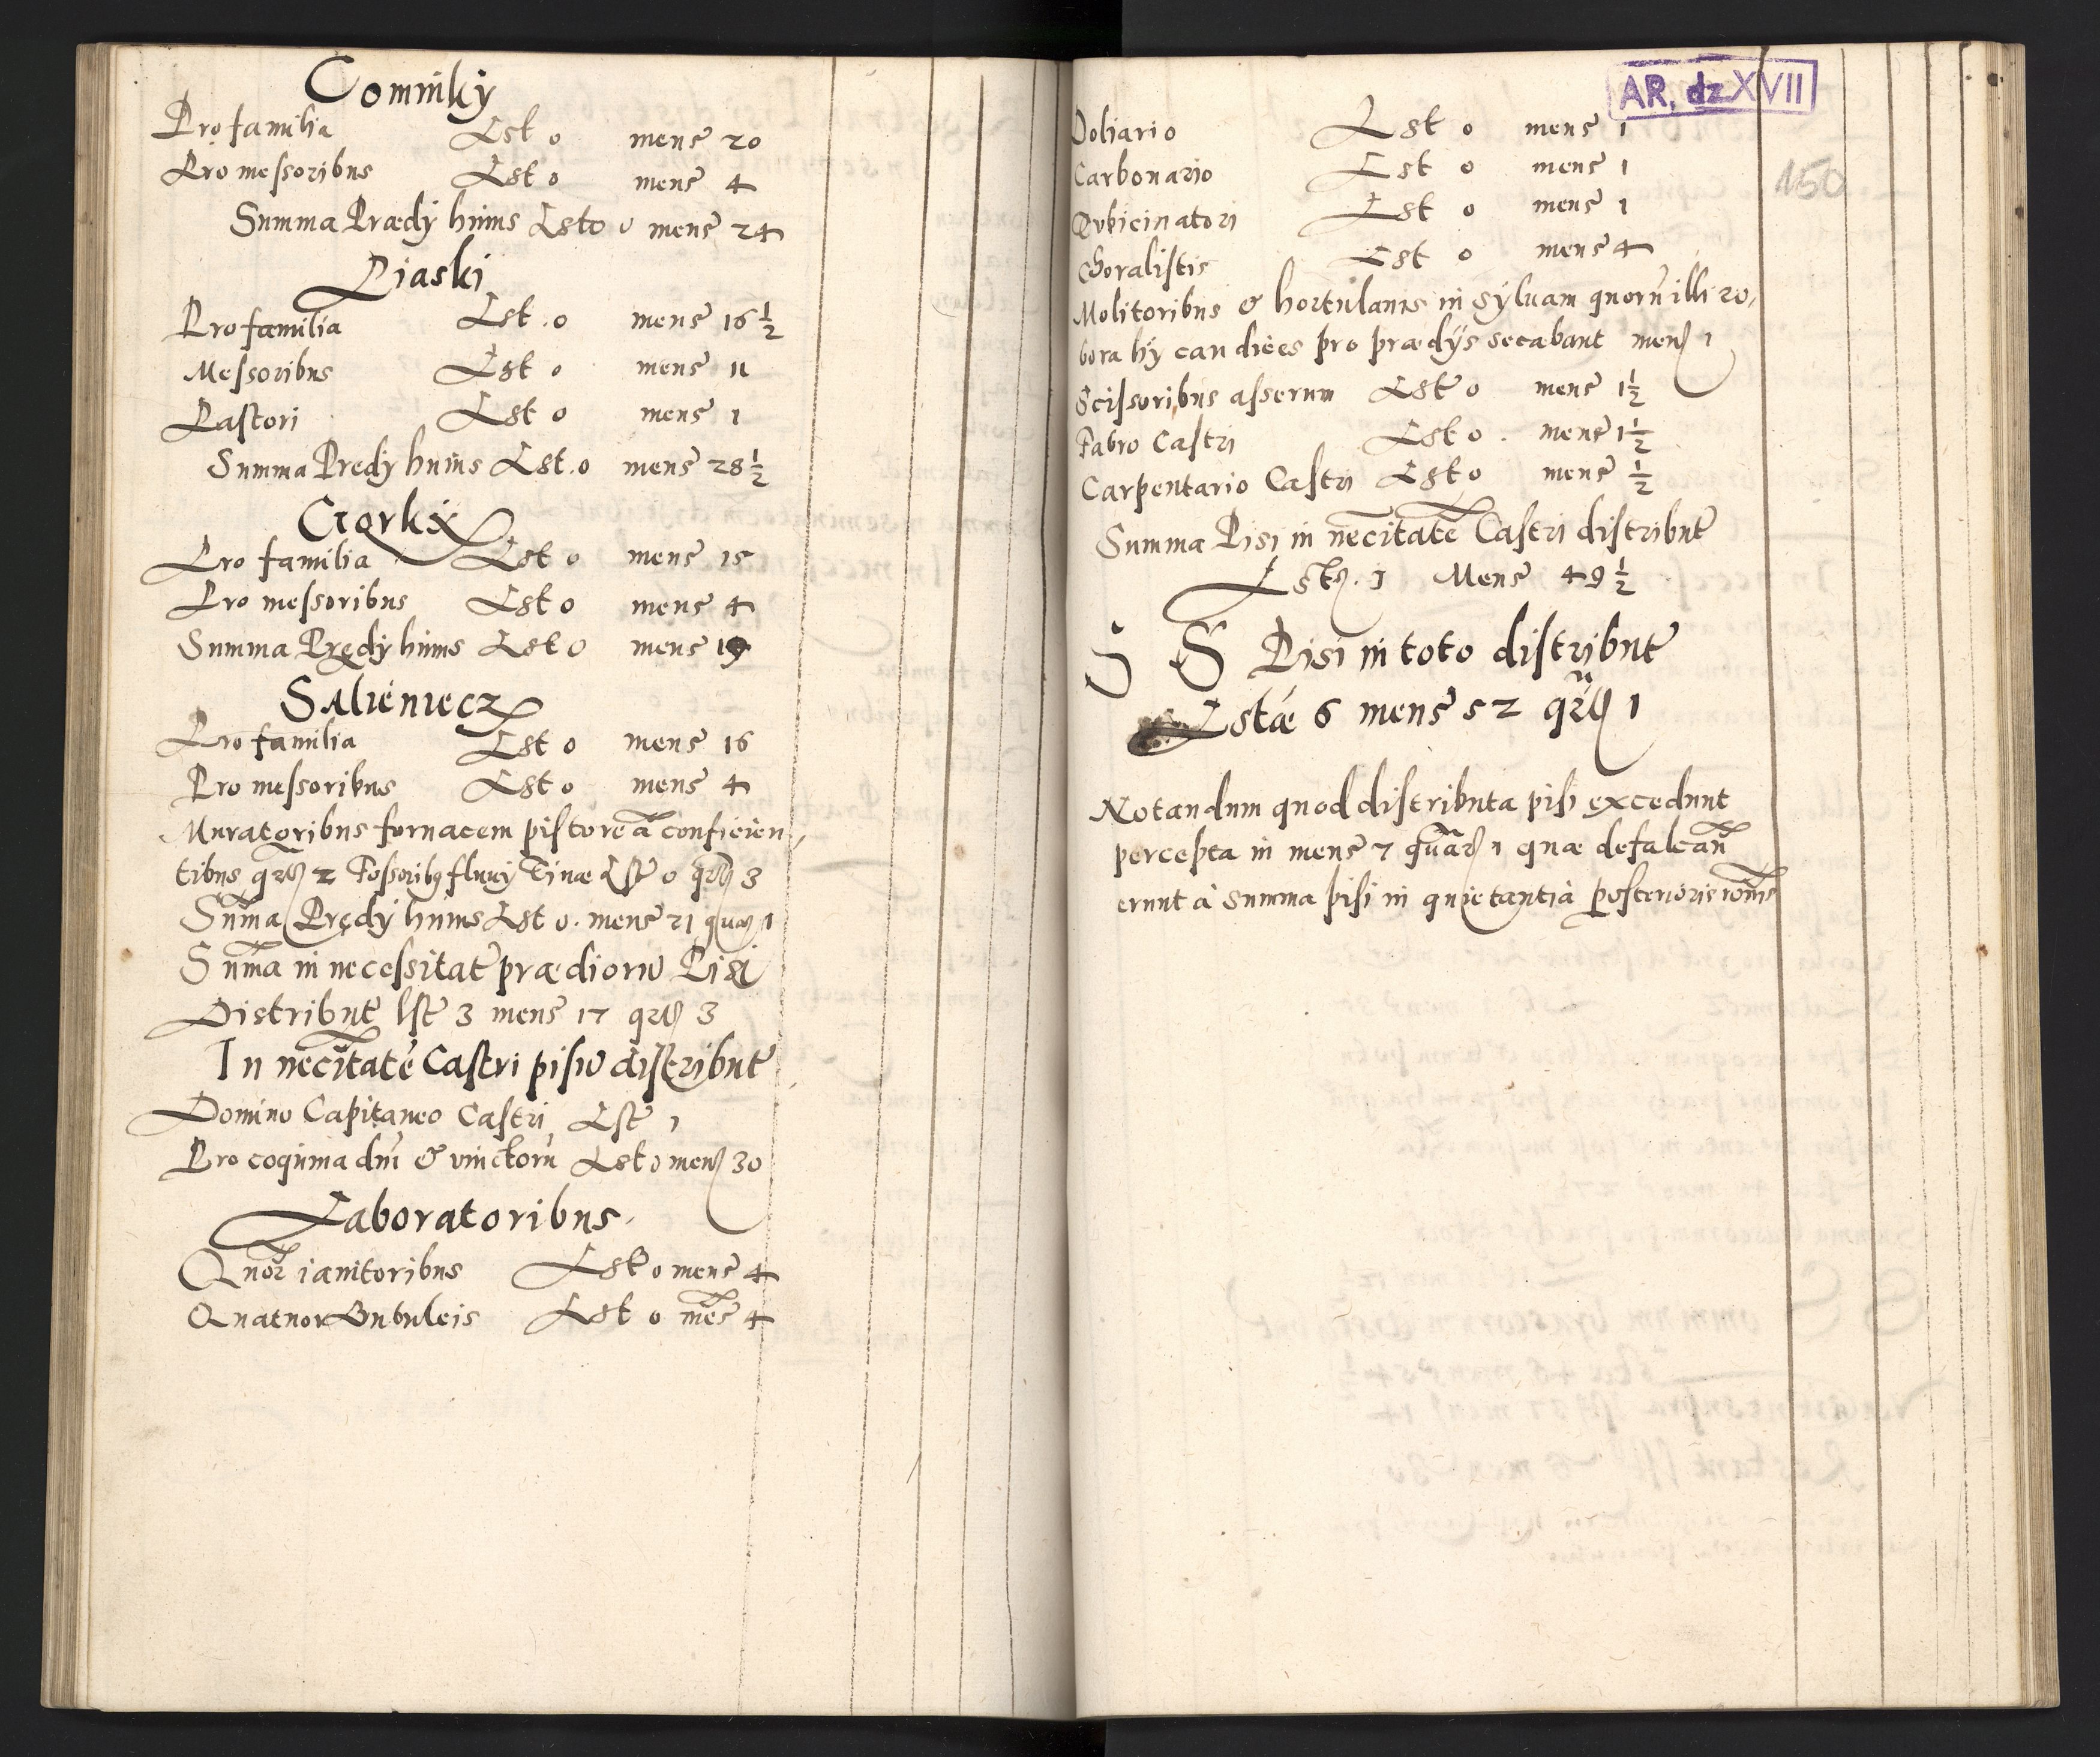 Comniky
Pro familia Lst o mens 20
Pro messoribus Lst o mens 4
Summa Prædy huius Lsto o mens 24
Piaski
Pro familia Lst . o mens 16 ½
Messoribus Lst o mens 11
Pastori Lst o mens 1
Summa Predy huius Lst . o mens 28 ½
Gorki
Pro familia Lst o mens 15
Pro messoribus Lst o mens 4
Summa Prędy huius Lst o mens 19
Pro familia Lst o mens 16
Pro messoribus Lst o mens 4
Muratoribus fornacem pistoreā conficien,
tibus qrt 2 Fossoribꝫ fluvy Linæ Lst o qrt 3
Sum̄a Prędy huius Lst o . mens 21 quar 1
Sum̄a in necessitat prædioru Pisi
Distribut lst 3 mens 17 qrt 3
In necitate Castri pisu distribut
Domino Capitaneo Castri Lst 1
Pro coquina dni & vinctoru Lst o mens 30
Laboratoribus
Quor ianitoribus Lst o mens 4
Quatuor Bubulcis Lst o mēs 4
AR, dz XVII
150
Doliario Lst o mens 1
Carbonario Lst o mens 1
Lst o mens 1
Choralistis Lst o mens 4
Molitoribus & hortulanis in sylvam quoru illi ro,
bora hy caudices pro prædys secabant mens 1
Scissoribus asserum Lst o mens 1½
Fabro Castri Lst o . mens 1½
Carpentario Castri Lst o mens ½
Summa Pisi in necitate Castri distribut
Lst . 1 Mens 49 ½
S S Pisi in toto distribut
Lstæ 6 mens 52 qrt 1
Notandum quod distributa pisi excedunt
percepta in mens 7 quar 1 quæ defalcan
erunt à summa pisi in quietantia posterioris ronis